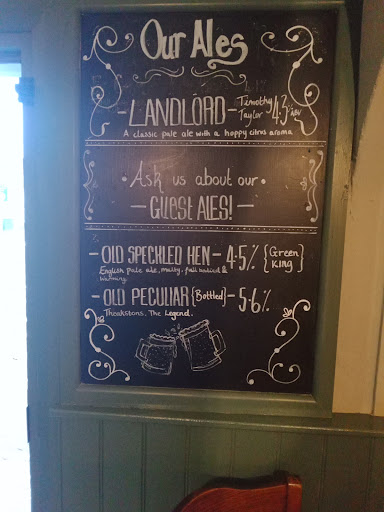 Our Ales
- LANDLORD - Timothy Taylor 4.3% ABV
A classic pale ale with a hoppy citrus aroma
• Ask us about our •
- GUEST ALES! -
- OLD SPECKLED HEN - 4.5% {Green King}
English pale ale, malty, full bodied &
warming.
- OLD PECULIAR {Bottled} - 5.6%
Theakstons. The Legend.